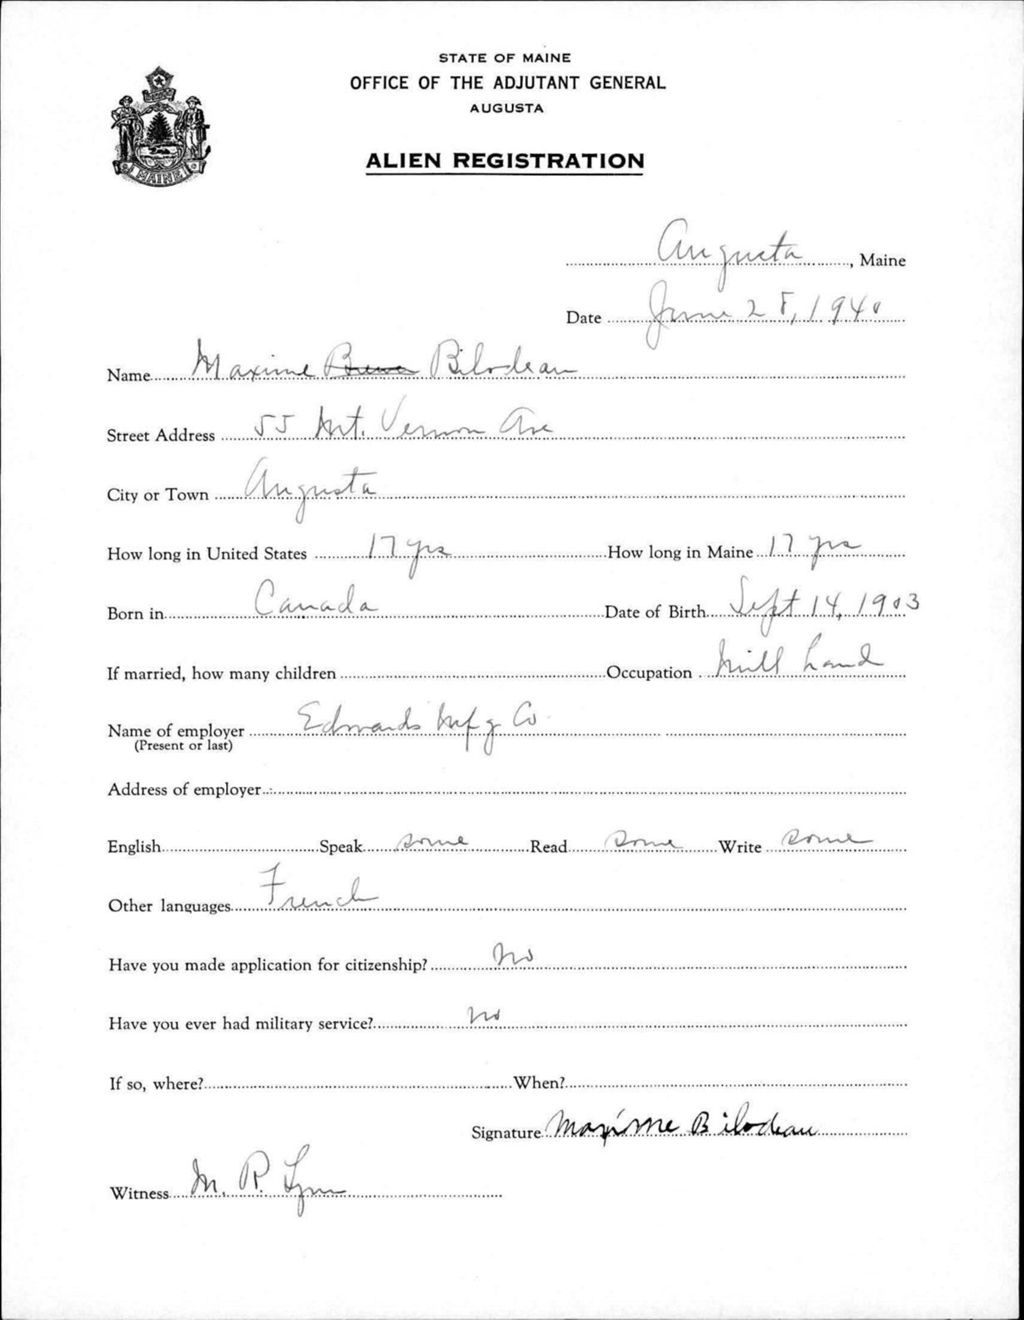 STATE OF MAINE
OFFICE OF THE ADJUTANT GENERAL
AUGUSTA
MAINE
ALIEN REGISTRATION
Augusta, Maine
Date June 28, 1940
Name Maxime Bilodeau
Street Address 55 Mt. Vernon Ave
City or Town Augusta
How long in United States 17 yrs How long in Maine 17 yrs
Born in Canada Date of Birth Sept 14, 1903
If married, how many children Occupation Mill hand
Name of employer Edwards Mfg Co.
(Present or last)
Address of employer
English Speak some Read some Write some
Other languages French
Have you made application for citizenship? No
Have you ever had military service? No
If so, where? When?
Signature Maxime Bilodeau
Witness M. R. Lynn